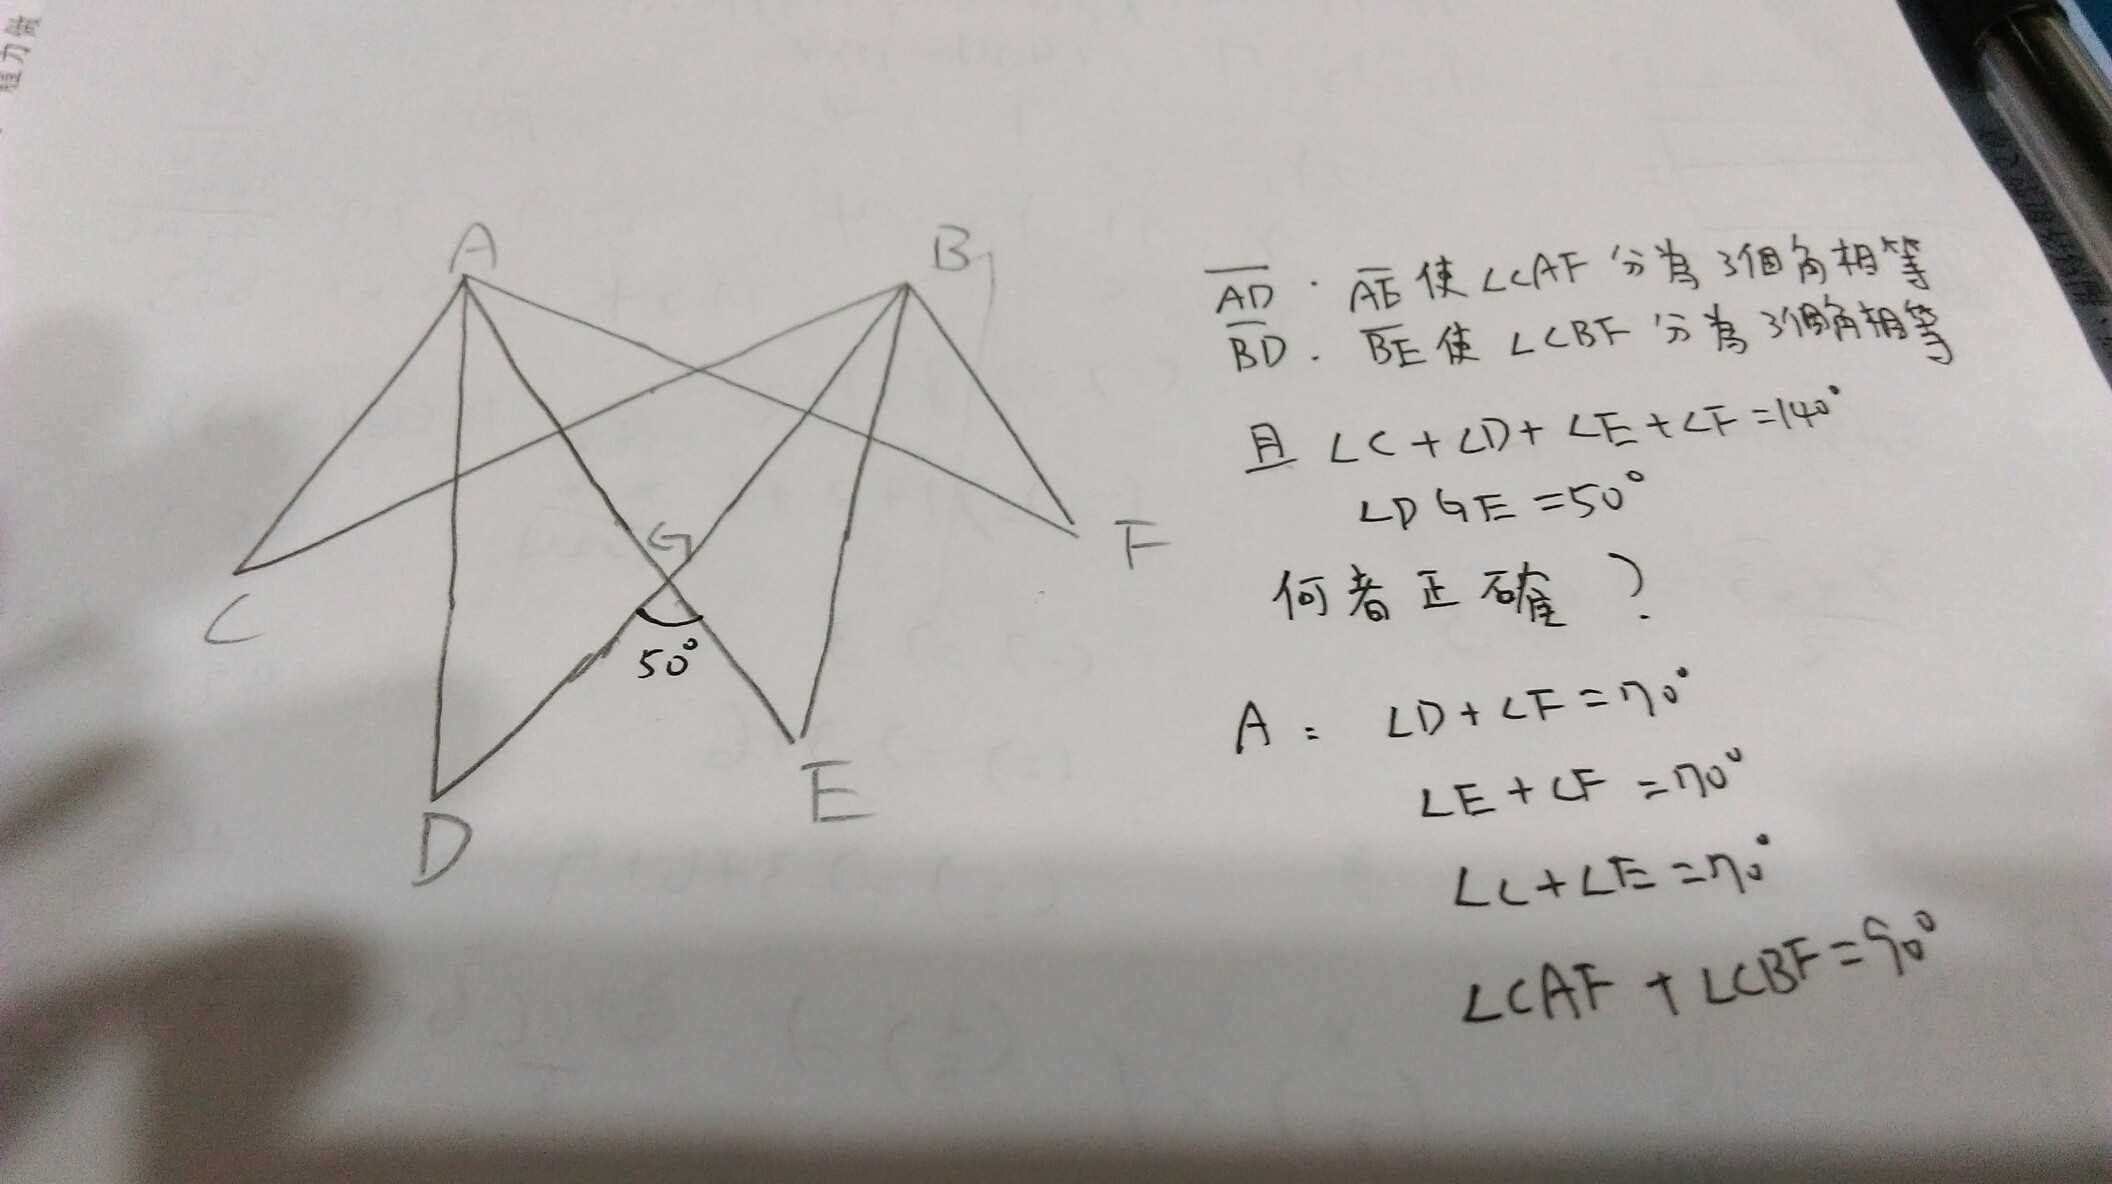 題力做
A
B
C
G
F
50°
D
E
AD . AE 使 ∠CAF 分為 3個角相等
BD . BE 使 ∠CBF 分為 3個角相等
且 ∠C + ∠D + ∠E + ∠F = 140°
∠DGE = 50°
何者正確?
A : ∠D + ∠F = 70°
∠E + ∠F = 70°
∠C + ∠E = 70°
∠CAF + ∠CBF = 90°